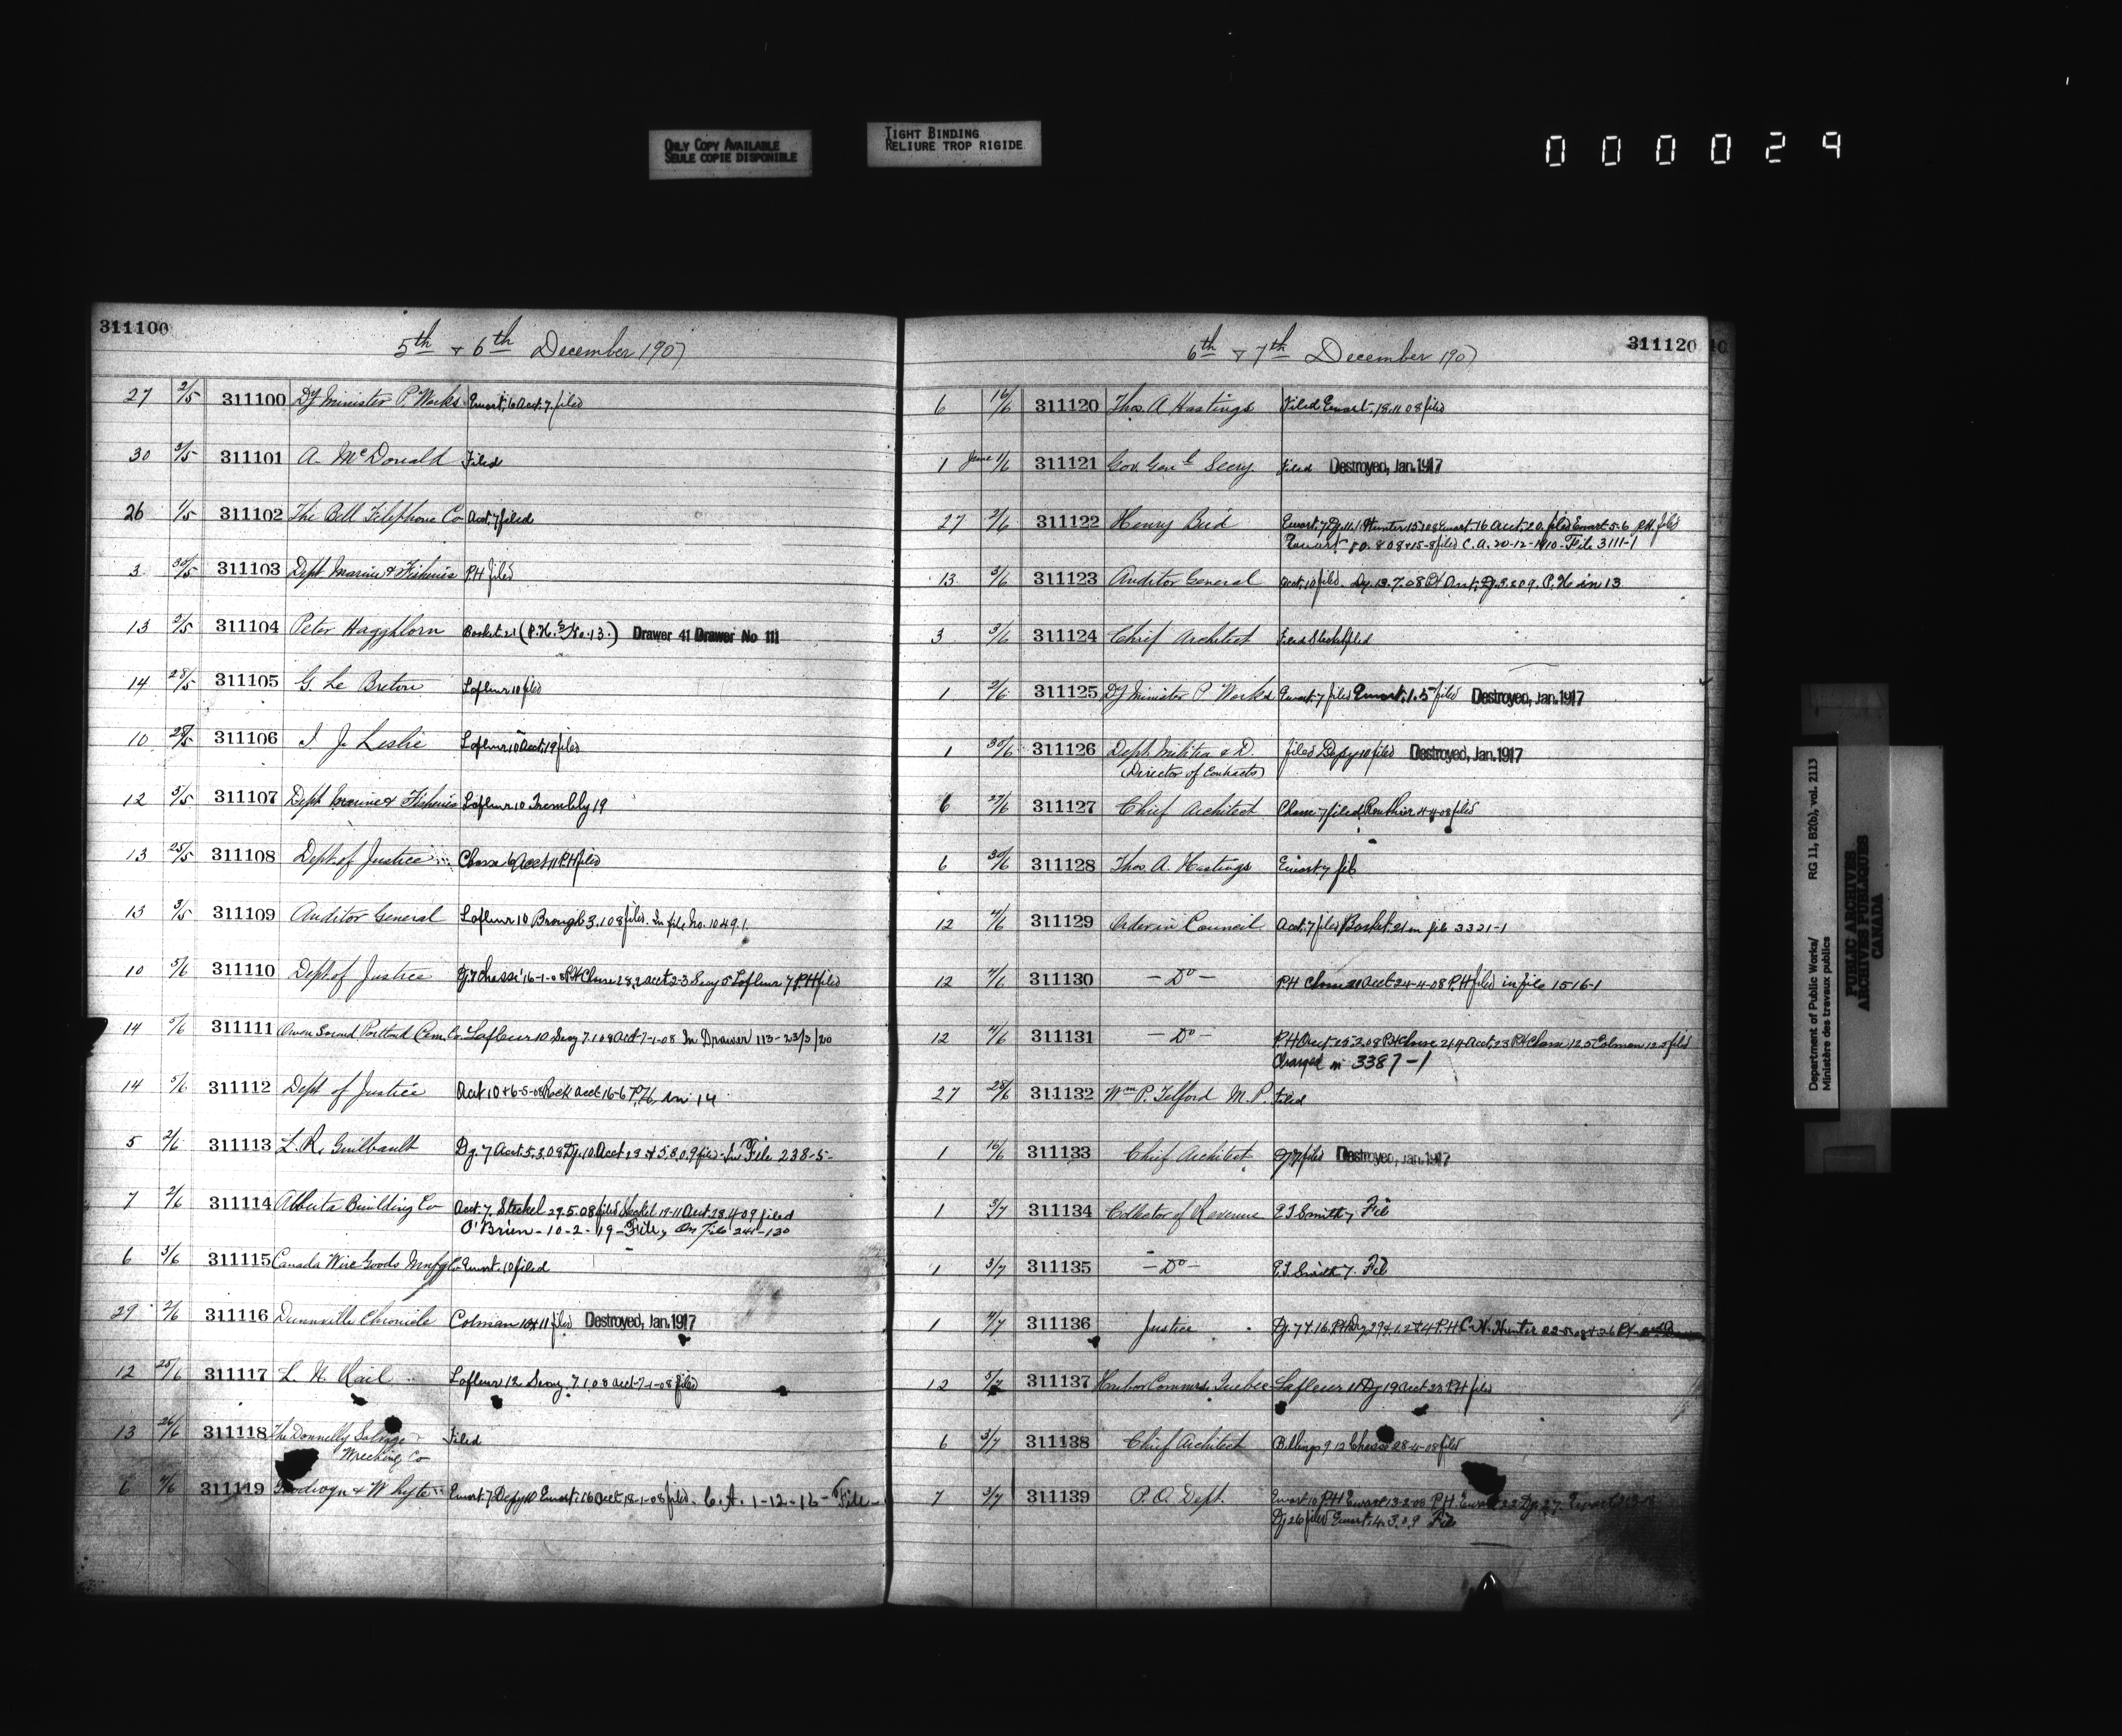 ONLY COPY AVAILABLE
SEULE COPIE DISPONIBLE
TIGHT BINDING
RELIURE TROP RIGIDE
000029
311100
5th & 6th December 1907
27 2/5 311100 Dy Minister P. Works Ewart, 6 Acct. 7. filed
30 3/5 311101 A. McDonald Filed
26 4/5 311102 The Bell Telephone Co Acct. 7 filed
3 30/5 311103 Dept Marine & Fisheries P.H filed
13 5/5 311104 Peter Hagghlorn Basket 21 (P.H. No. 13.) Drawer 41 Drawer No 111
14 28/5 311105 G. Le Breton Lafleur 10 filed
10 28/5 311106 I J. Leslie Lafleur 10 Acct. 19 filed
12 3/5 311107 Dept Marine & Fisheries Lafleur 10 Trembly 19
13 25/5 311108 Dept of Justice Chasse 6 Acct 11 P.H filed
13 3/5 311109 Auditor General Lafleur 10 Brough 3.1.08 filed. In file No. 1049.1.
10 5/6 311110 Dept of Justice Dy. 7 Chasse 16-1-08 P.H Chasse 28.2 acct 2-3 Seay 5 Lafleur 7 P.H filed
14 5/6 311111 Owen Sound Portland Cem. Co. Lafleur 10 Seay 7.1.08 Acct 7-1-08 In Drawer 113-23/3/20
14 5/6 311112 Dept of Justice Acct 10 & 6-5-08 Acct 16-6 P.H. in 14
5 2/6 311113 L. R. Guilbault Dy. 7 Acct. 5.3.08 Dy. 10. Acct 5.8.09 filed - In File 238-5-
7 2/6 311114 Alberta Building Co Acct. 7. Steckel 29.5.08 filed Steckel 19-11 Acct 28.4.09 filed
O'Brien - 10-2-19 - File, On File 241-130
6 3/6 311115 Canada Wire Goods Mnfg Co Ewart. 10 filed
29 2/6 311116 Dunnville Chronicle Colman 10 & 11 filed Destroyed, Jan. 1917
12 25/6 311117 L. N. Rail Lafleur 12 Seay. 7.1.08 acct-7-1-08 filed
13 26/6 311118 The Donnelly Salvage &
Wrecking Co Filed
6 4/6 311119 & Whyte Ewart. 7 Depy 10 Ewart. 16 Acct 18-1-08 filed. C. A. 1-12-16 - File -
311120
6th & 7th December 1907
6 16/6 311120 Thos. A Hastings Filed Ewart. 18.11.08 filed
1 June 1/6 311121 Gov. Genl Secry. Filed Destroyed, Jan. 1917
27 2/6 311122 Henry Bird Ewart. 7 Dy. 11.1 Hunter 15.1.08 Ewart. 16 Acct. 20. filed Ewart 5-6 P.H. filed
Ewart 10.8.08 & 15-8 filed C. A. 20-12-1910 - File 3111-1
13 3/6 311123 Auditor General Acct. 10 filed. Dy. 13.7.08 Dy. 3.2.09. P. H. in 13
3 3/6 311124 Chief Architect Filed Steckel filed
1 2/6 311125 Dy Minister P Works Ewart. 7 filed Ewart. 1.5 filed Destroyed, Jan. 1917
1 30/6 311126 Dept. Militia & D. filed Depy 10 filed Destroyed, Jan. 1917
(Director of Contracts)
6 27/6 311127 Chief Architect Chasse 7 filed Routhier 4-4-08 filed
6 30/6 311128 Thos. A. Hastings Ewart 7 file
12 4/6 311129 Order in Council Acct. 7 filed Basket. 21 in file 3321-1
12 4/6 311130 - Do - P.H Chasse 21 Acct 24-4-08 P.H filed in file 1516-1
12 4/6 311131 - Do - P.H Acct 25.2.08 P.H Chasse 21.4 Acct. 23 P.H Chasse 12.5 Colman 12.5 filed
Charged in 3387-1
27 28/6 311132 Wm P. Telford M. P. Filed
1 16/6 311133 Chief Architect Dy. 7 filed Destroyed, Jan. 1917
1 3/7 311134 Collector of Revenue E J Smith 7 File
1 3/7 311135 - Do - E. J. Smith 7. File
1 4/7 311136 Justice Dy. 7 & 16. P.H Dy 29 & 1.2 & 4 P.H C. H. Hunter
12 5/7 311137 Harbor Commrs, Quebec Lafleur 11 Dy 19 Acct 23 P.H filed
6 3/7 311138 Chief Architect Billings 9 12 Chasse 28-4-08 filed
7 3/7 311139 P. O. Dept. Ewart 10 P.H Ewart 13-2-08 P.H. Ewart 22 Dy. 27. Ewart
Dy 26 filed Ewart. 4.3.09 File
Department of Public Works/
Ministère des travaux publics
RG 11, B2(b), vol. 2113
PUBLIC ARCHIVES
ARCHIVES PUBLIQUES
CANADA